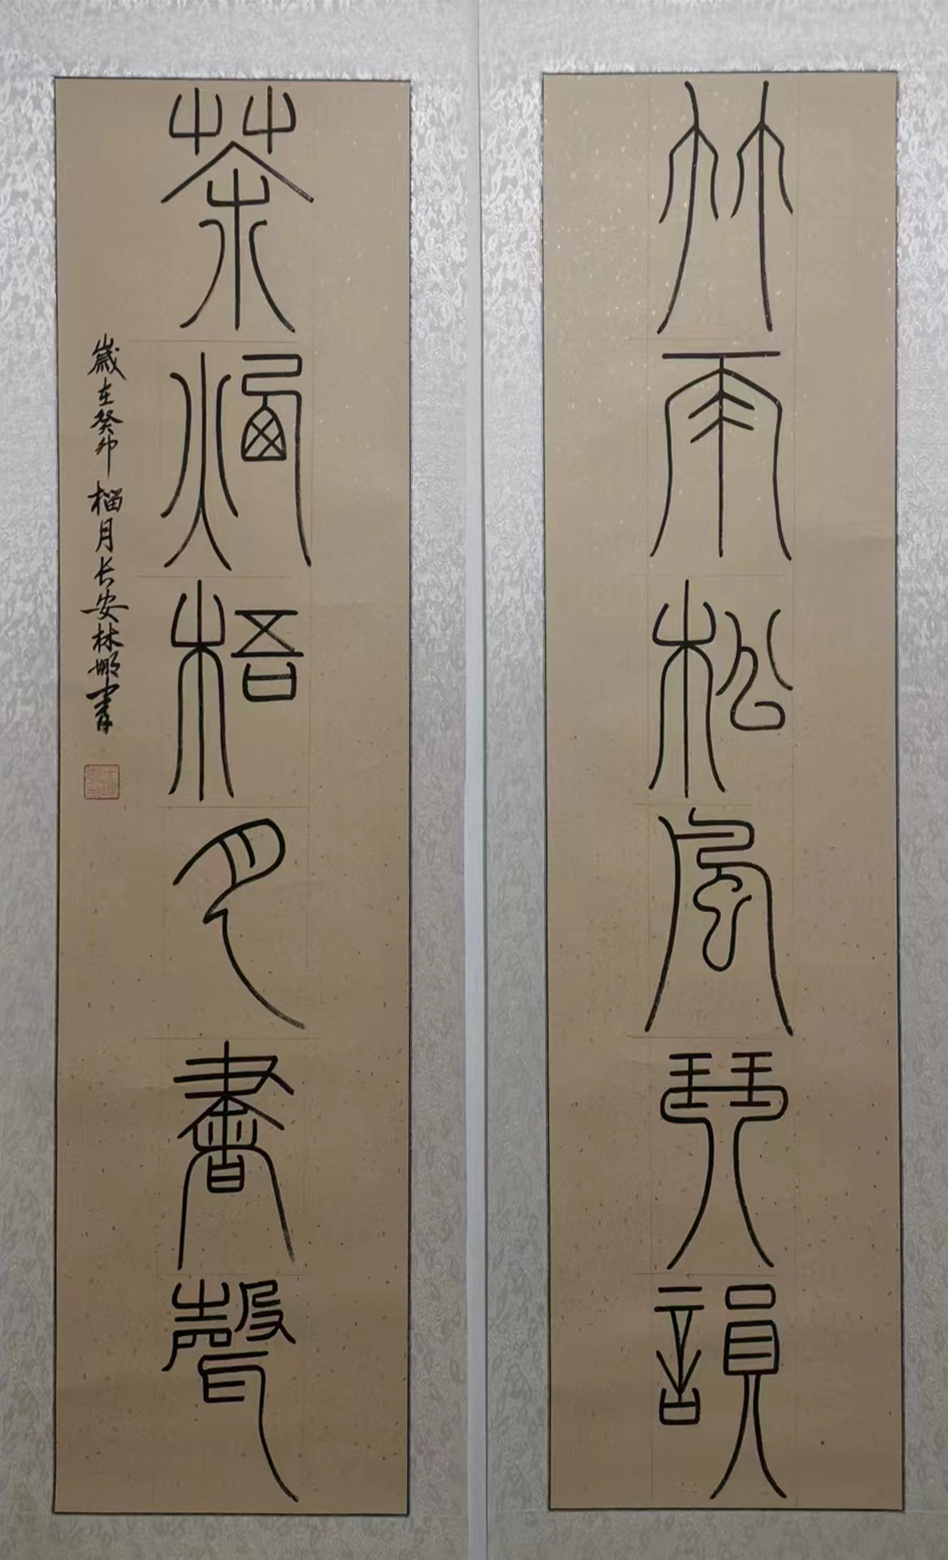 竹雨松風琴韻
茶煙梧月書聲
歲在癸卯榴月长安林娜書